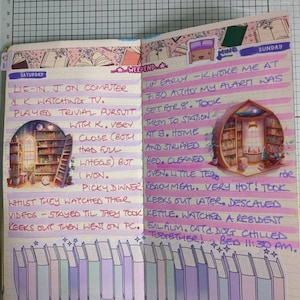 SATURDAY
WEEKEND
LIE-IN. J ON COMPUTER
& K WATCHING TV.
PLAYED TRIVIAL PURSUIT
WITH K. VERY
CLOSE (BOTH
HAD FULL
WHEELS) BUT
WON.
PICKY DINNER
WHILST THEY WATCHED THEIR
VIDEOS - STAYED TIL THEY TOOK
KEEKS OUT THEN WENT ON PC.
SUNDAY
UP EARLY - K WOKE ME AT
ALARM WAS
SET FOR 8. TOOK
THEM TO STATION
AT 8. HOME
AND STRIPPED
BED, CLEANED
OVEN. LITTLE FOR
READY MEAL. VERY HOT! TOOK
KEEKS OUT LATER. DESCALED
KETTLE. WATCHED A RESIDENT
EVIL FILM. CAT & DOG CHILLED
TOGETHER! BED 11:30 AM.